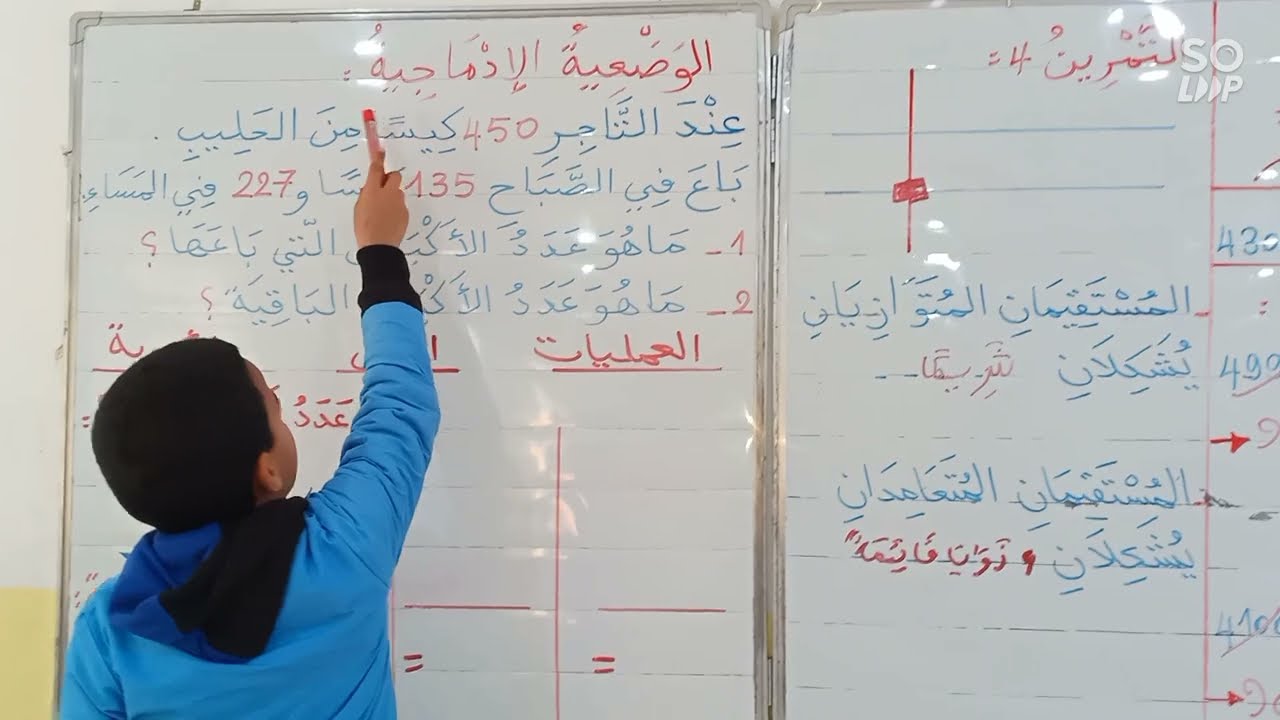 الوَضْعِيةُ الإِدْمَاجِيةُ :
عِنْدَ التَّاجِرِ 450 كِيسًا مِنَ الحَلِيبِ .
بَاعَ فِي الصَّبَاحِ 135 و 227 فِي المَسَاءِ.
1- مَا هُوَ عَدَدُ الَّتِي بَاعَهَا ؟
2- مَا هُوَ عَدَدُ البَاقِيَة ؟
العمليات
عَدَدُ
=
=
التَّمْرِينُ 4 :
المُسْتَقِيمَانِ المُتَوَازِيَانِ
يُشَكِلَانِ
المُسْتَقِيمَانِ المُتَعَامِدَانِ
يُشَكِلَانِ زَوَايَا قَائِمَة"
430
SO
LOOP